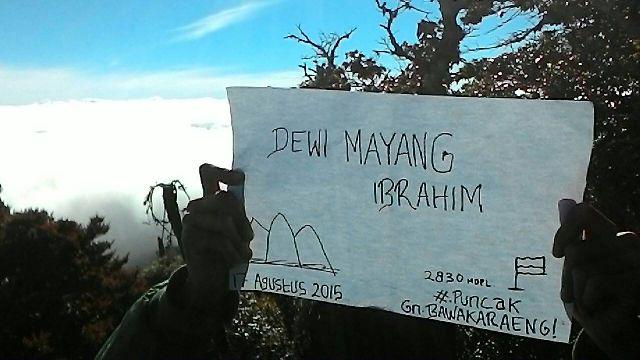 DEWI MAYANG
IBRAHIM
17 AGUSTUS 2015
2830 MDPL
#.PUNCAK
Gn.BAWAKARAENG!